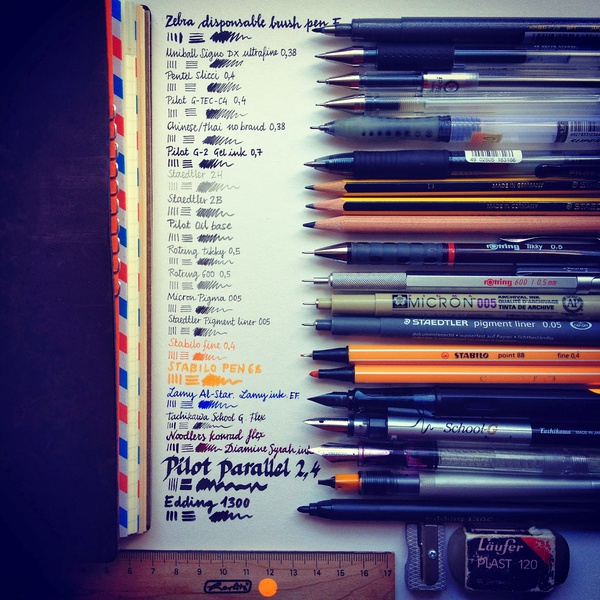 Zebra disposable brush pen F
Uniball Signo DX ultrafine 0,38
Pentel Slicci 0,4
Pilot G-TEC-C4 0,4
Chinese/thai no brand 0,38
Pilot G-2 Gel ink 0,7
49 02505 163166
Staedtler 2H
Staedtler 2B
Pilot Oil base
Rotring Tikky 0,5
rotring Tikky 0.5
Rotring 600 0,5
rotring 600 / 0.5mm
Micron Pigma 005
MICRON 005 ARCHIVAL INK
QUALITÉ D'ARCHIVAGE
TINTA DE ARCHIVO
Staedtler Pigment liner 005
STAEDTLER pigment liner 0.05
Stabilo fine 0,4
STABILO point 88 fine 0,4
STABILO PEN 68
Lamy Al-Star. Lamy ink EF
Tachikawa School G. Flex
School-G Tachikawa
Noodlers Konrad flex
Diamine Syrah ink
Pilot Parallel 2,4
Edding 1300
Läufer
PLAST 120
6 7 8 9 10 11 12 13 14 15 16 17